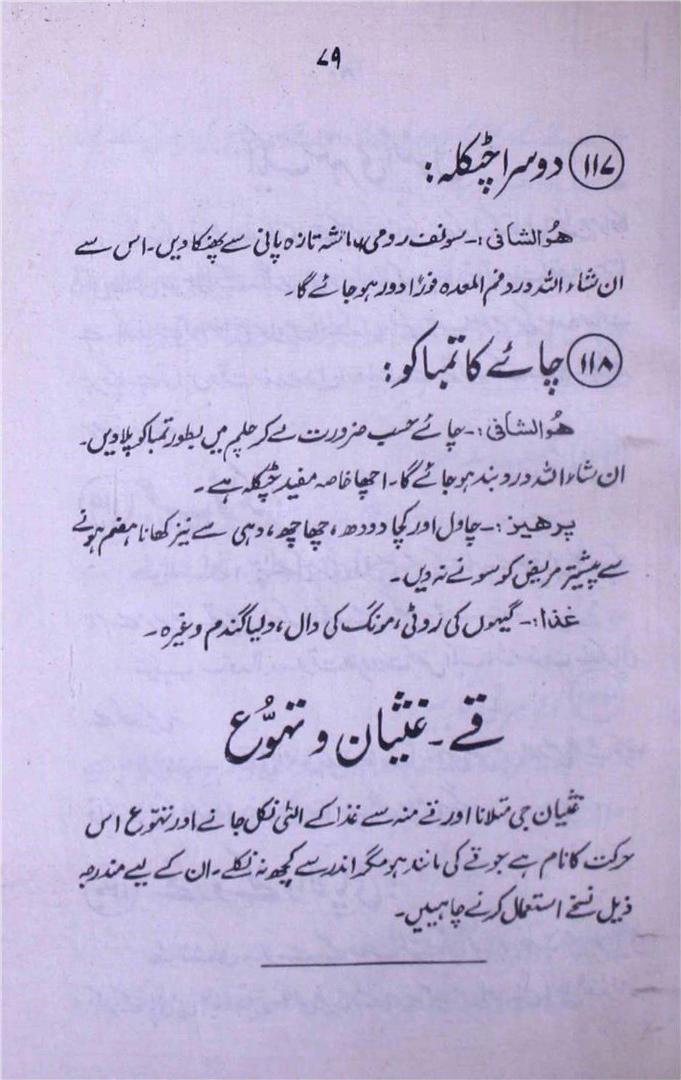 ۷۹
۱۱۷ دوسرا چٹکلہ:
ھُوالشافی:۔ سونف رومی ماشہ تازہ پانی سے پھنکا دیں۔ اس سے
ان شاء اللہ درد فم المعدہ فورًا دور ہو جائے گا۔
۱۱۸ چائے کا تمباکو:
ھُوالشافی:۔ چائے حسب ضرورت لے کر چلم میں بطور تمباکو پلا دیں۔
ان شاء اللہ درد بند ہو جائے گا۔ اچھا خاصہ مفید چٹکلہ ہے۔
پرھیز:۔ چاول اور کچا دودھ، چھاچھ، دہی سے نیز کھانا ہضم ہونے
سے پیشتر مریض کو سونے نہ دیں۔
غذا:۔ گیہوں کی روٹی، مونگ کی دال، دلیا گندم وغیرہ۔
قے۔ غثیان و تہوُّع
غثیان جی متلانا اور قے منہ سے غذا کے الٹی نکل جانے اور تہوع اس
حرکت کا نام ہے جو قے کی مانند ہو مگر اندر سے کچھ نہ نکلے۔ ان کے لیے مندرجہ
ذیل نسخے استعمال کرنے چاہییں۔